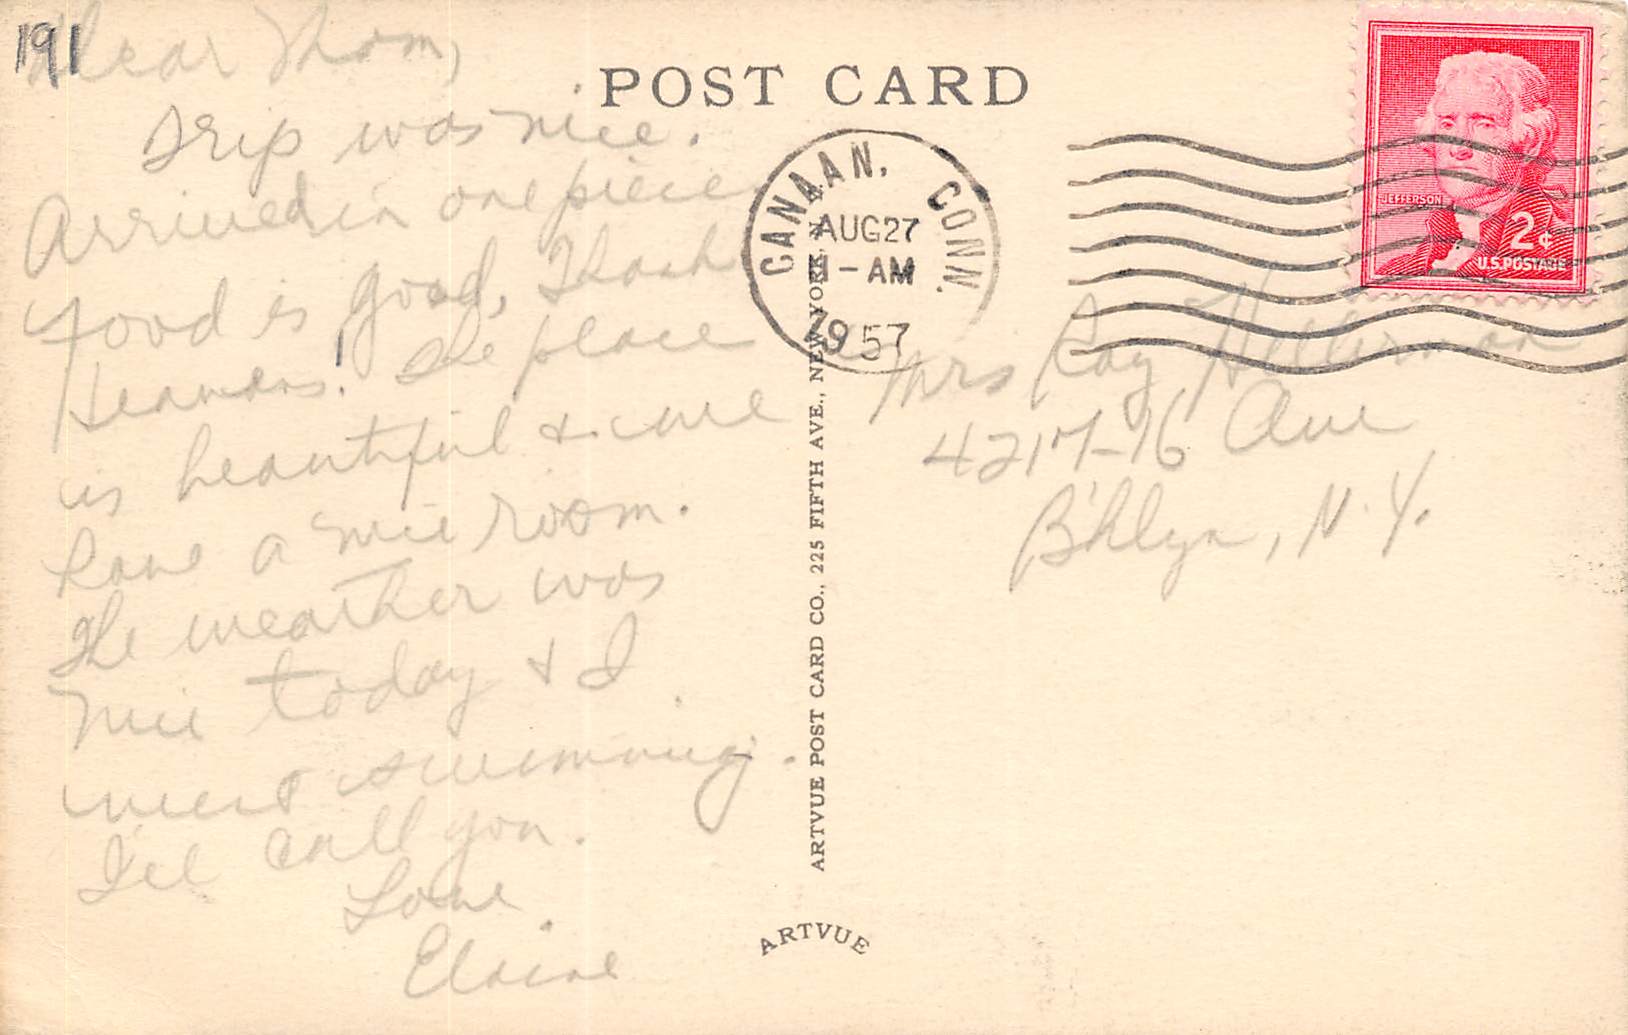 191
Dear Mom,
Trip was nice.
Arrived in one piece.
Food is good, Thank
Heavens! The place
is beautiful & we
have a nice room.
The weather was
nice today & I
went swimming.
I'll call you.
Love
Elaine
POST CARD
CANAAN, CONN.
AUG 27
1 - AM
1957
JEFFERSON
2¢
U.S. POSTAGE
Mrs Ray Hellerman
4217-16 Ave
B'klyn, N.Y.
ARTVUE POST CARD CO., 225 FIFTH AVE., NEW YORK, N.Y.
ARTVUE